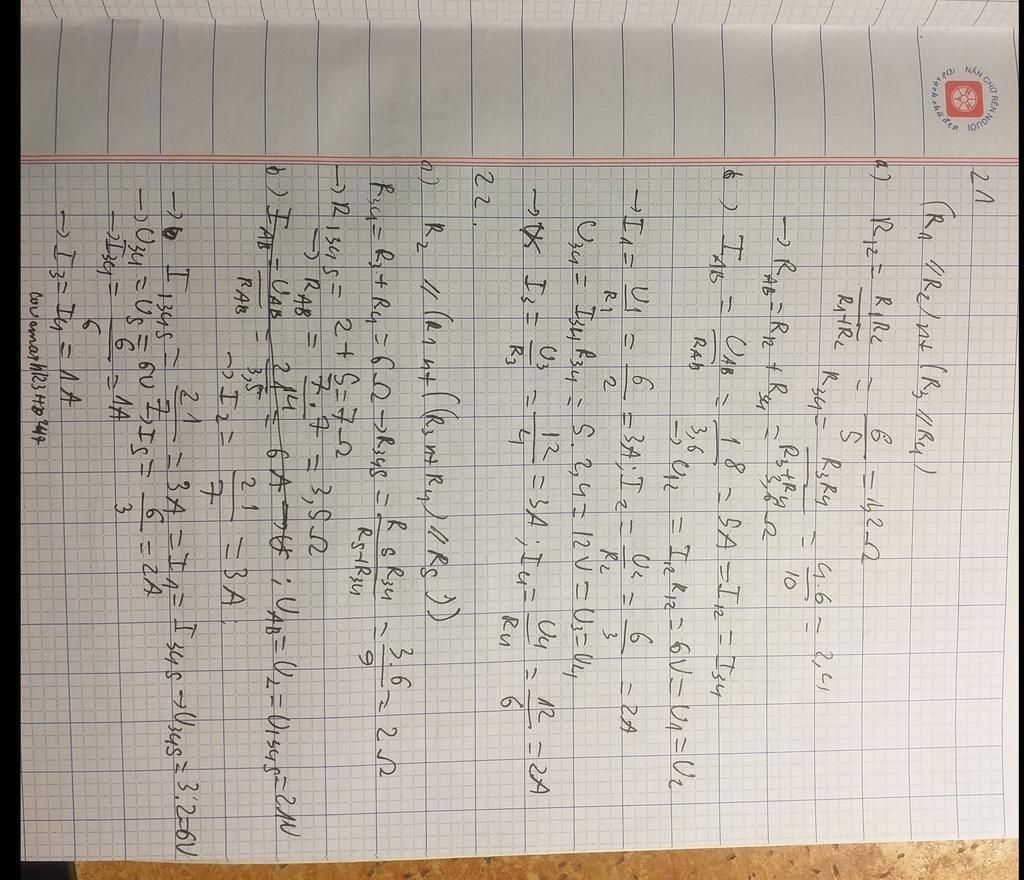 NẮN CHỮ RÈN NGƯỜI
21
(R1 // R2) nt (R3 // R4)
a) R12 = R1R2 / R1+R2 = 6/5 = 1,2 Ω
R34 = R3R4 / R3+R4 = 4.6/10 = 2,4
→ RAB = R12 + R34 = 3,6 Ω
b) IAB = UAB/RAB = 18/3,6 = 5A = I12 = I34
→ U12 = I12 R12 = 6V = U1 = U2
→ I1 = U1/R1 = 6/2 = 3A; I2 = U2/R2 = 6/3 = 2A
U34 = I34 R34 = 5.2,4 = 12V = U3 = U4
→ I3 = U3/R3 = 12/4 = 3A; I4 = U4/R4 = 12/6 = 2A
22.
a) R2 // (R1 nt ((R3 nt R4) // R5))
R34 = R3 + R4 = 6 Ω → R345 = R5R34 / R5+R34 = 3.6/9 = 2 Ω
→ R1345 = 2 + 5 = 7 Ω
→ RAB = 7.7/14 = 3,5 Ω
b) IAB = UAB/RAB = 21/3,5 = 6A; UAB = U2 = U1345 = 21V
→ I2 = 21/7 = 3A;
→ I1345 = 21/7 = 3A = I1 = I345 → U345 = 3.2 = 6V
→ U34 = U5 = 6V → I5 = 6/3 = 2A
→ I34 = 6/6 = 1A
→ I3 = I4 = 1A